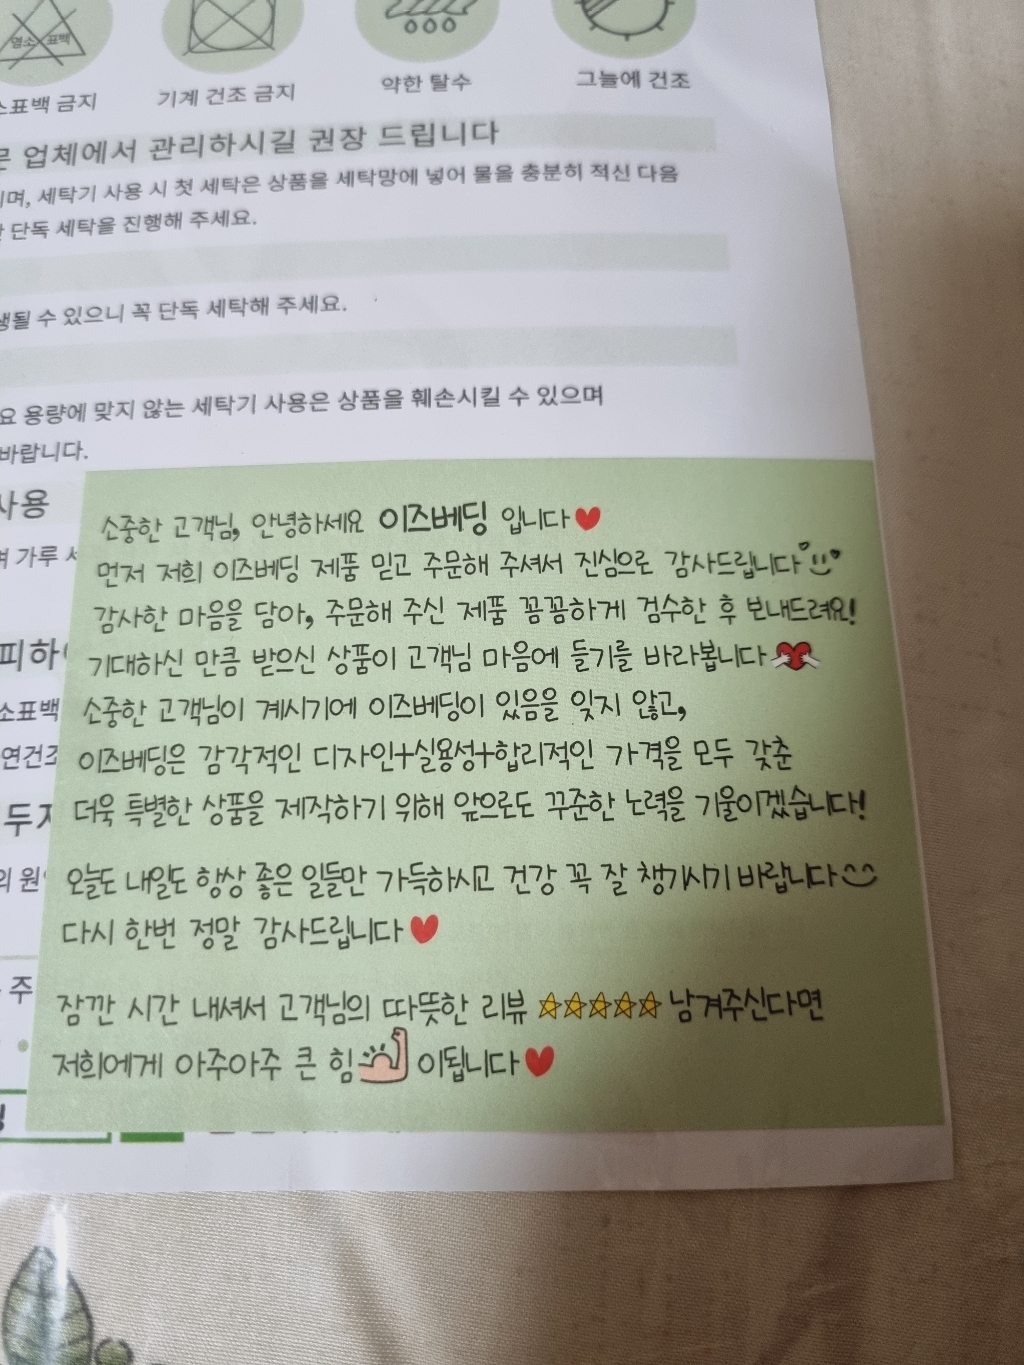 염소 표백
표백 금지
기계 건조 금지
약한 탈수
그늘에 건조
업체에서 관리하시길 권장 드립니다
세탁기 사용 시 첫 세탁은 상품을 세탁망에 넣어 물을 충분히 적신 다음
단독 세탁을 진행해 주세요.
수 있으니 꼭 단독 세탁해 주세요.
용량에 맞지 않는 세탁기 사용은 상품을 훼손시킬 수 있으며
바랍니다.
사용
가루
소중한 고객님, 안녕하세요 이즈베딩 입니다
먼저 저희 이즈베딩 제품 믿고 주문해 주셔서 진심으로 감사드립니다
감사한 마음을 담아, 주문해 주신 제품 꼼꼼하게 검수한 후 보내드려요!
기대하신 만큼 받으신 상품이 고객님 마음에 들기를 바라봅니다
소중한 고객님이 계시기에 이즈베딩이 있음을 잊지 않고,
이즈베딩은 감각적인 디자인+실용성+합리적인 가격을 모두 갖춘
더욱 특별한 상품을 제작하기 위해 앞으로도 꾸준한 노력을 기울이겠습니다!
오늘도 내일도 항상 좋은 일들만 가득하시고 건강 꼭 잘 챙기시기 바랍니다
다시 한번 정말 감사드립니다
잠깐 시간 내셔서 고객님의 따뜻한 리뷰 ☆☆☆☆☆ 남겨주신다면
저희에게 아주아주 큰 힘 이됩니다